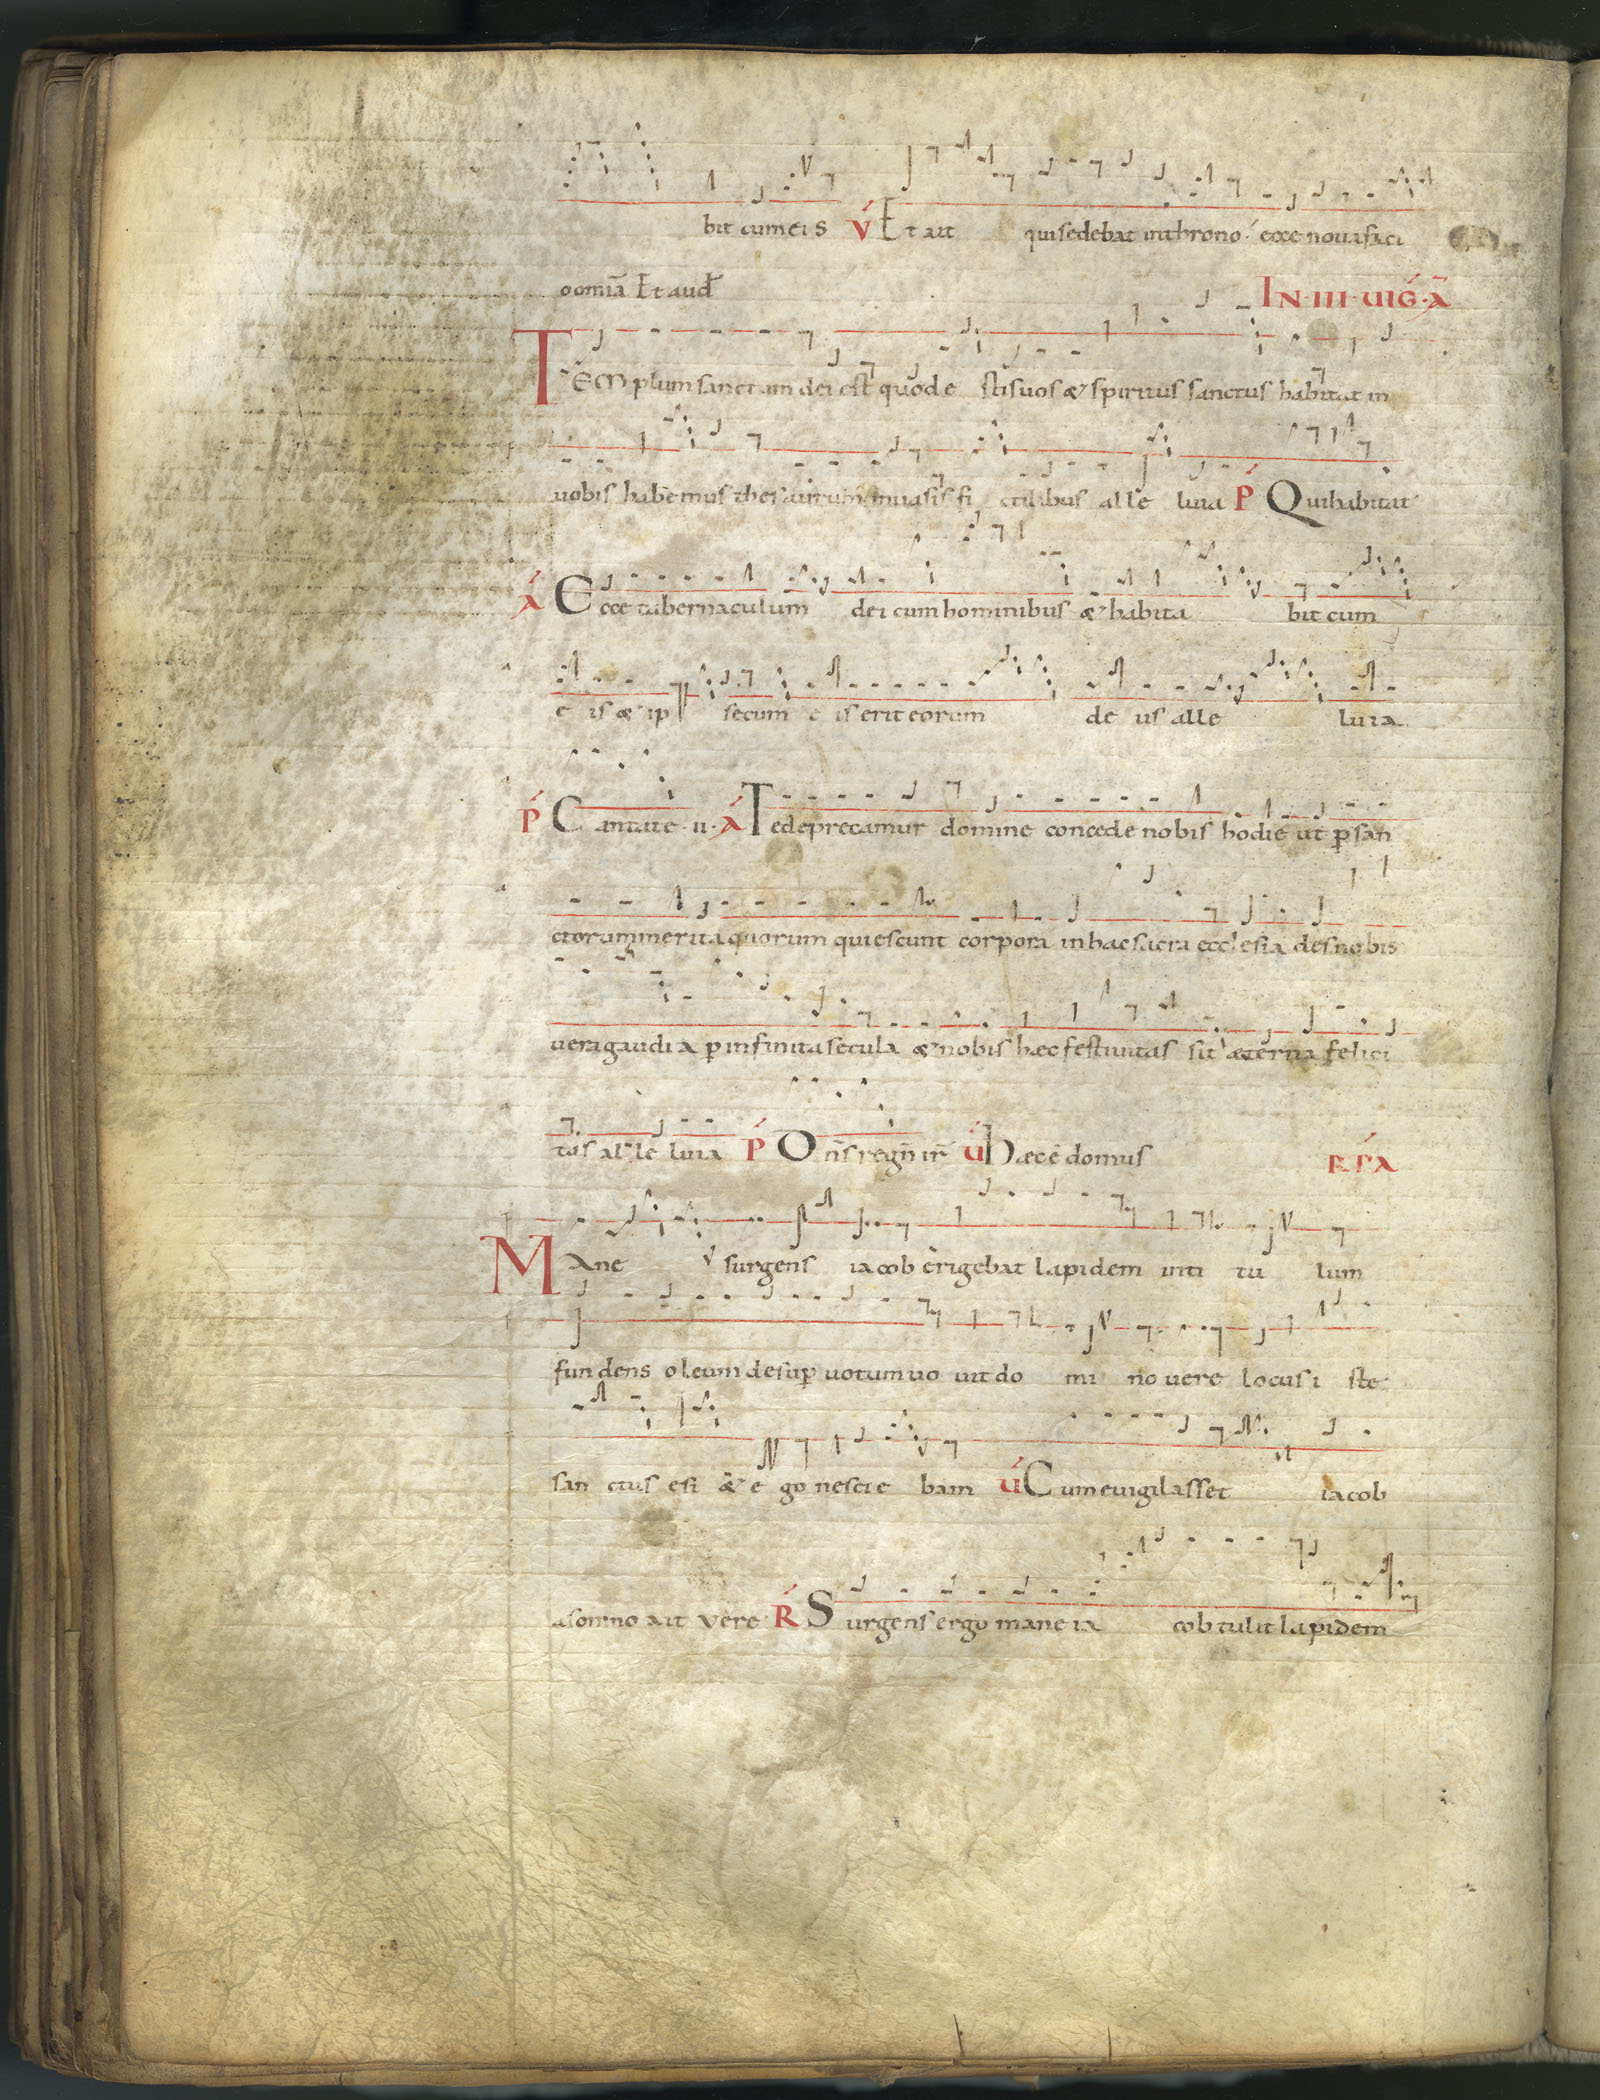 bit cum eis V́ Et ait qui sedebat in throno ecce nova faci
o omiā Et aud̄
IN·III·UIǴ·Ā
TEM plum sanctum dei est quod e stis vos & spiritus sanctus habitat in
uobis habemus thesaurum in uasis fi ctilibus alle luia P Qui habitat
Á Ecce tabernaculum dei cum hominibus & habita bit cum
e is & ip se cum e is erit eorum de us alle luia
Ṕ Cantate·ii· Á Te deprecamur domine concede nobis hodie ut p̄ san
ctorum merita quorum quiescunt corpora in hac sacra ecclesia des nobis
uera gaudia p̄ infinita secula & nobis haec festiuitas sit aeterna felici
tas alle luia Ṕ Oñs regn̄ ir̄ Ú Haec ē domus
R. Ṕ A
Mane surgens iacob erigebat lapidem in ti tu lum
fundens oleum desup̄ uotum uo uit do mi no uere locus i ste
san ctus est & e go nescie bam Ú Cum euigilasset iacob
a somno ait vere Ŕ Surgens ergo mane ia cob tulit lapidem